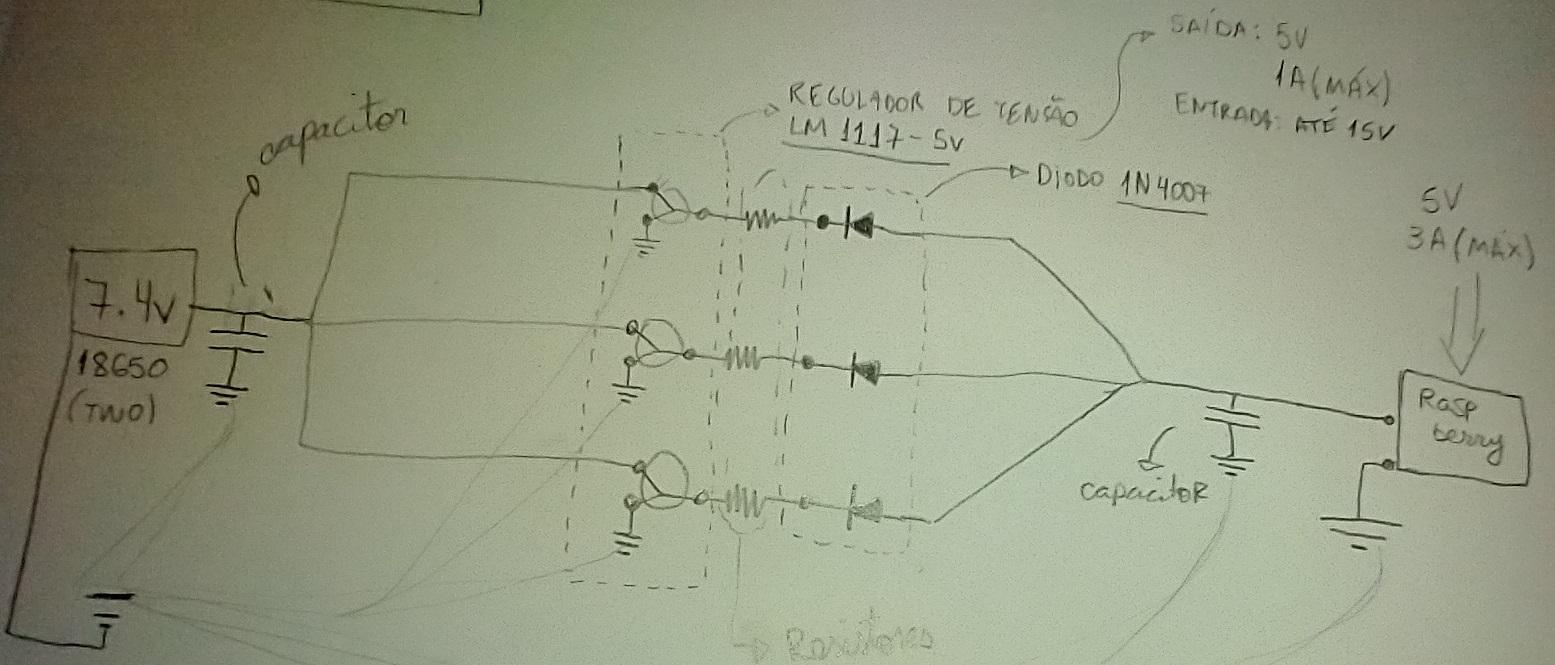 capacitor
REGULADOR DE TENSÃO
LM 1117-5V
SAÍDA: 5V
1A (MÁX)
ENTRADA: ATÉ 15V
DIODO 1N4007
5V
3A (MÁX)
7.4V
18650
(TWO)
Rasp
berry
capacitor
Resistores